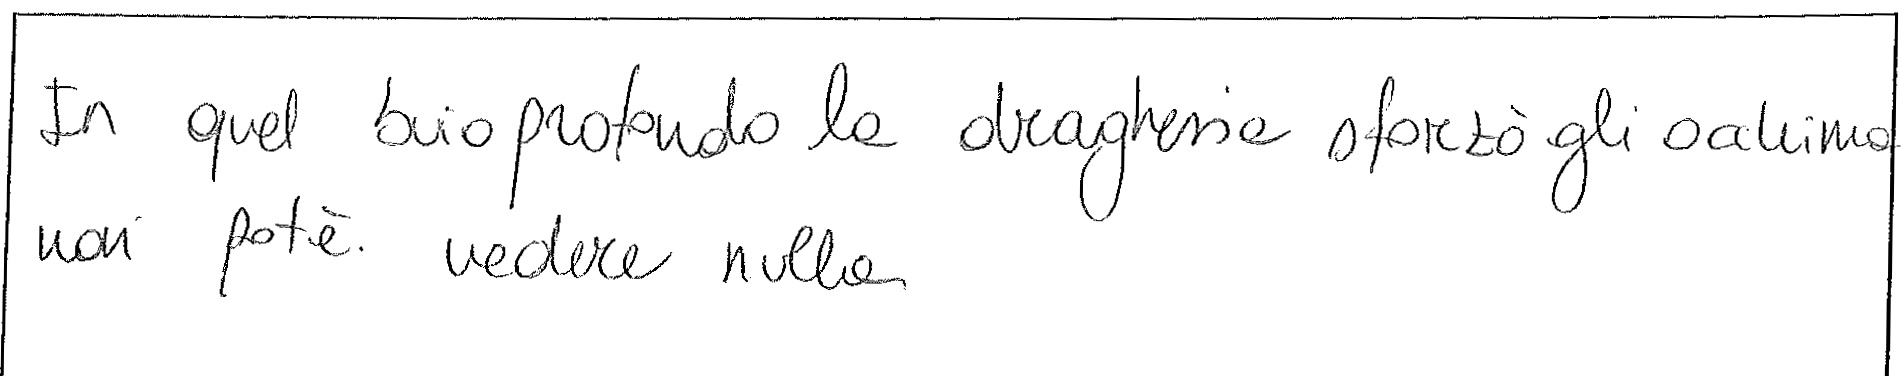 In quel buio profondo la draghessa sforzò gli occhi ma
non potè. vedere nulla